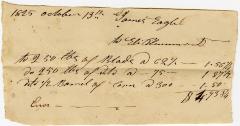 1825 October 13th James Eagle
to Eli
to 250 lbs of Blades a 62½ - 1.56¼
do 250 lbs of do a 75 - 1.87½
do ½ Barrel of Corn a 300 - 1.50
$ 4.93¾